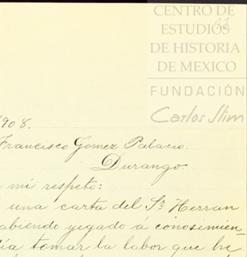 CENTRO DE
ESTUDIOS
DE HISTORIA
DE MEXICO
FUNDACIÓN
Carlos Slim
1908.
Francisco Gomez Palacio.
Durango.
mi respeto:
una carta del Sr. Herran
abiendo yegado á conosimien_
tomar la labor que he